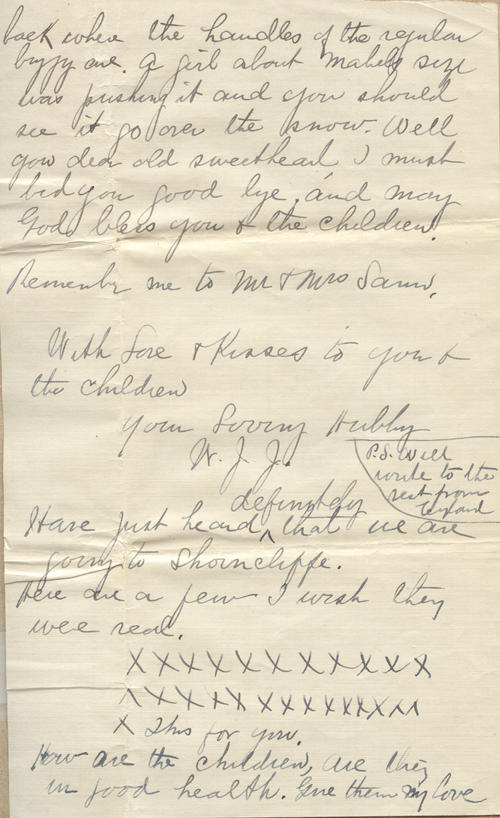 back where the handles of the regular
buggy are. A girl about Mabels size
was pushing it and you should
see it go over the snow. Well
you dear old sweetheart I must
bid you good bye, and may
God bless you & the children.
Remember me to Mr & Mrs
With Love & Kisses to you &
the children
Your Loving Hubby
W. J. J.
P.S. Will
write to the
rest from
definitely
Have just heard ^ that we are
going to Shorncliffe.
Here are a few I wish they
were real.
X X X X X X X X X X X X
X X X X X X X X X X X X X X X
X This for you.
How are the children, are they
in good health. Give them my love